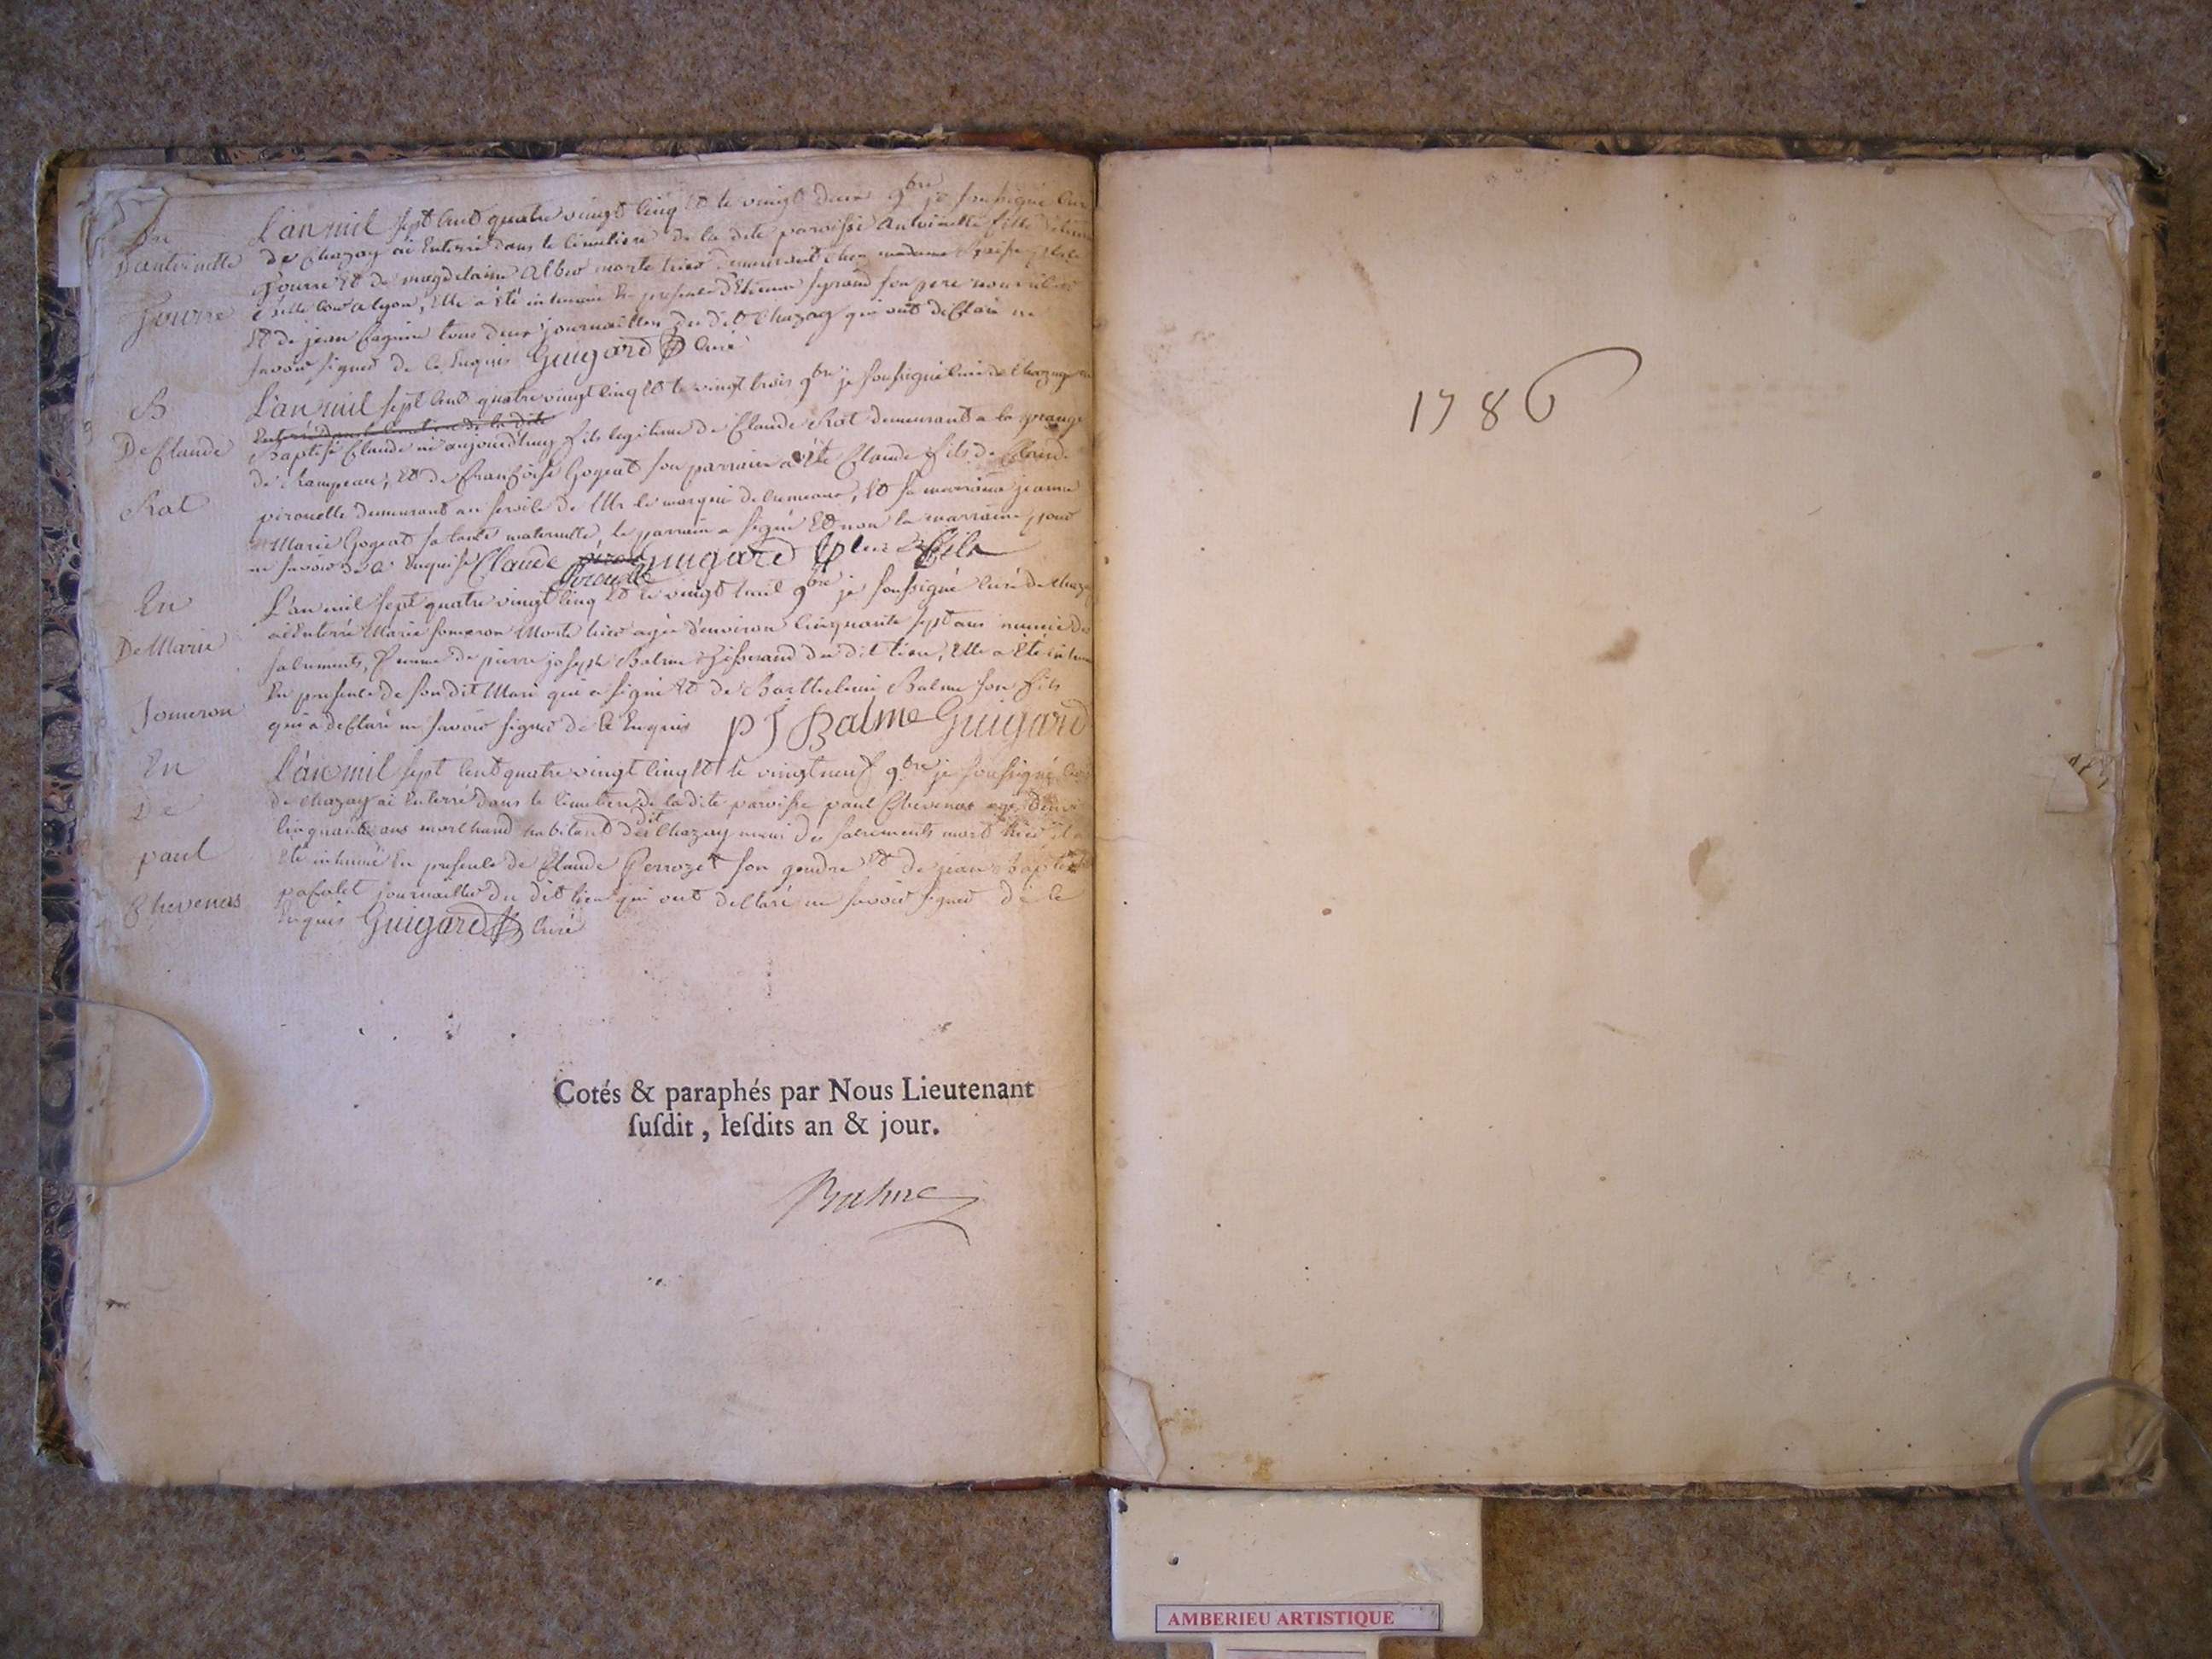 En
D'antoinette
Fourre
L'an mil sept cent quatre vingt cinq et le vingt deux 9bre je soussigné curé
de Chazay ai enterré dans le cimetiere de la dite paroisse antoinette fille
et de magdelaine morte hier demeurant chez madame
a lyon, elle a été inhumée en presence d'Etienne son pere
Et de jean tous deux journailler du dit Chazay qui ont declaré ne
savoir signer de ce enquis Guigard curé
B
De Claude
Rat
L'an mil sept cent quatre vingt cinq et le vingt trois 9bre je soussigné curé de Chazay ai
enterré dans le cimetiere de la dite
Baptisé Claude né aujourd'huy fils legitime de Claude Rat demeurant a la grange
de Rampeau, et de françoise Gogeat son parrain a été Claude fils de Claude
pirouette demeurant au service de Mr le marqui de, et sa marraine jeanne
Marie Gogeat sa tante maternelle, le parrain a signé et non la marraine pour
ne savoir de ce enquise Claude Guigard curé fils
Pirouette
En
De Marie
Jomeron
L'an mil sept quatre vingt cinq et le vingt huit 9bre je soussigné curé de Chazay
ai enterré Marie Jomeron Morte hier agée d'environ cinquante sept ans munie des
sacrements, femme de pierre joseph Balme tisserand du dit lieu, elle a été inhumée
en presence de son dit Mari qui a signé et de Barthelemi Balme son fils
qui a declaré ne savoir signer de ce enquis p J Balme Guigard
En
De
paul
Chevenas
L'an mil sept cent quatre vingt cinq et le vingt neuf 9bre je soussigné curé
de Chazay ai enterré dans le cimetiere de la dite paroisse paul Chevenas agé d'envi
cinquante ans marchand habitant dudit Chazay muni des sacrements mort hier il a
eté inhumé en presence de Claude Perrozet son gendre et de jean Baptiste
pacalet journailler du dit lieu qui ont declaré ne savoir signer de ce
enquis Guigard curé
Cotés & paraphés par Nous Lieutenant
ſuſdit, leſdits an & jour.
Balme
1786
AMBERIEU ARTISTIQUE